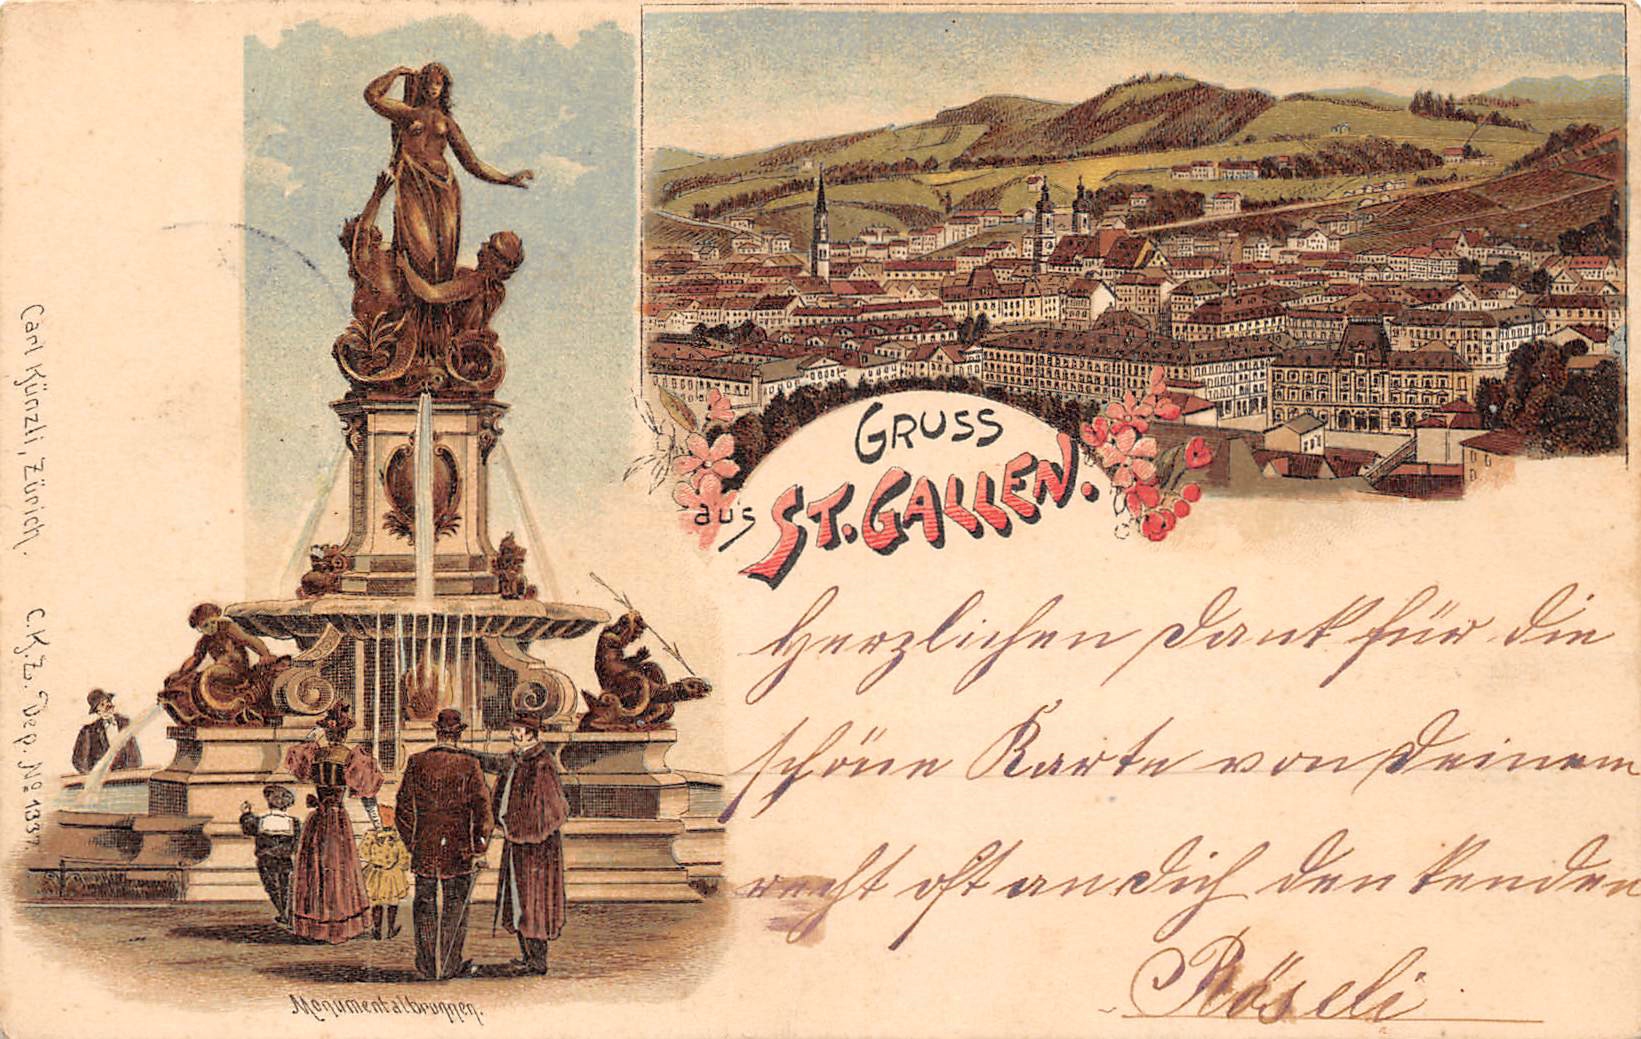 Carl Künzli, Zürich. C.K.Z. Dep. № 1337
GRUSS
aus ST. GALLEN.
Herzlichen Dank für die
schöne Karte von Deinem
recht oft an Dich denkenden
Röseli
Monumentalbrunnen.